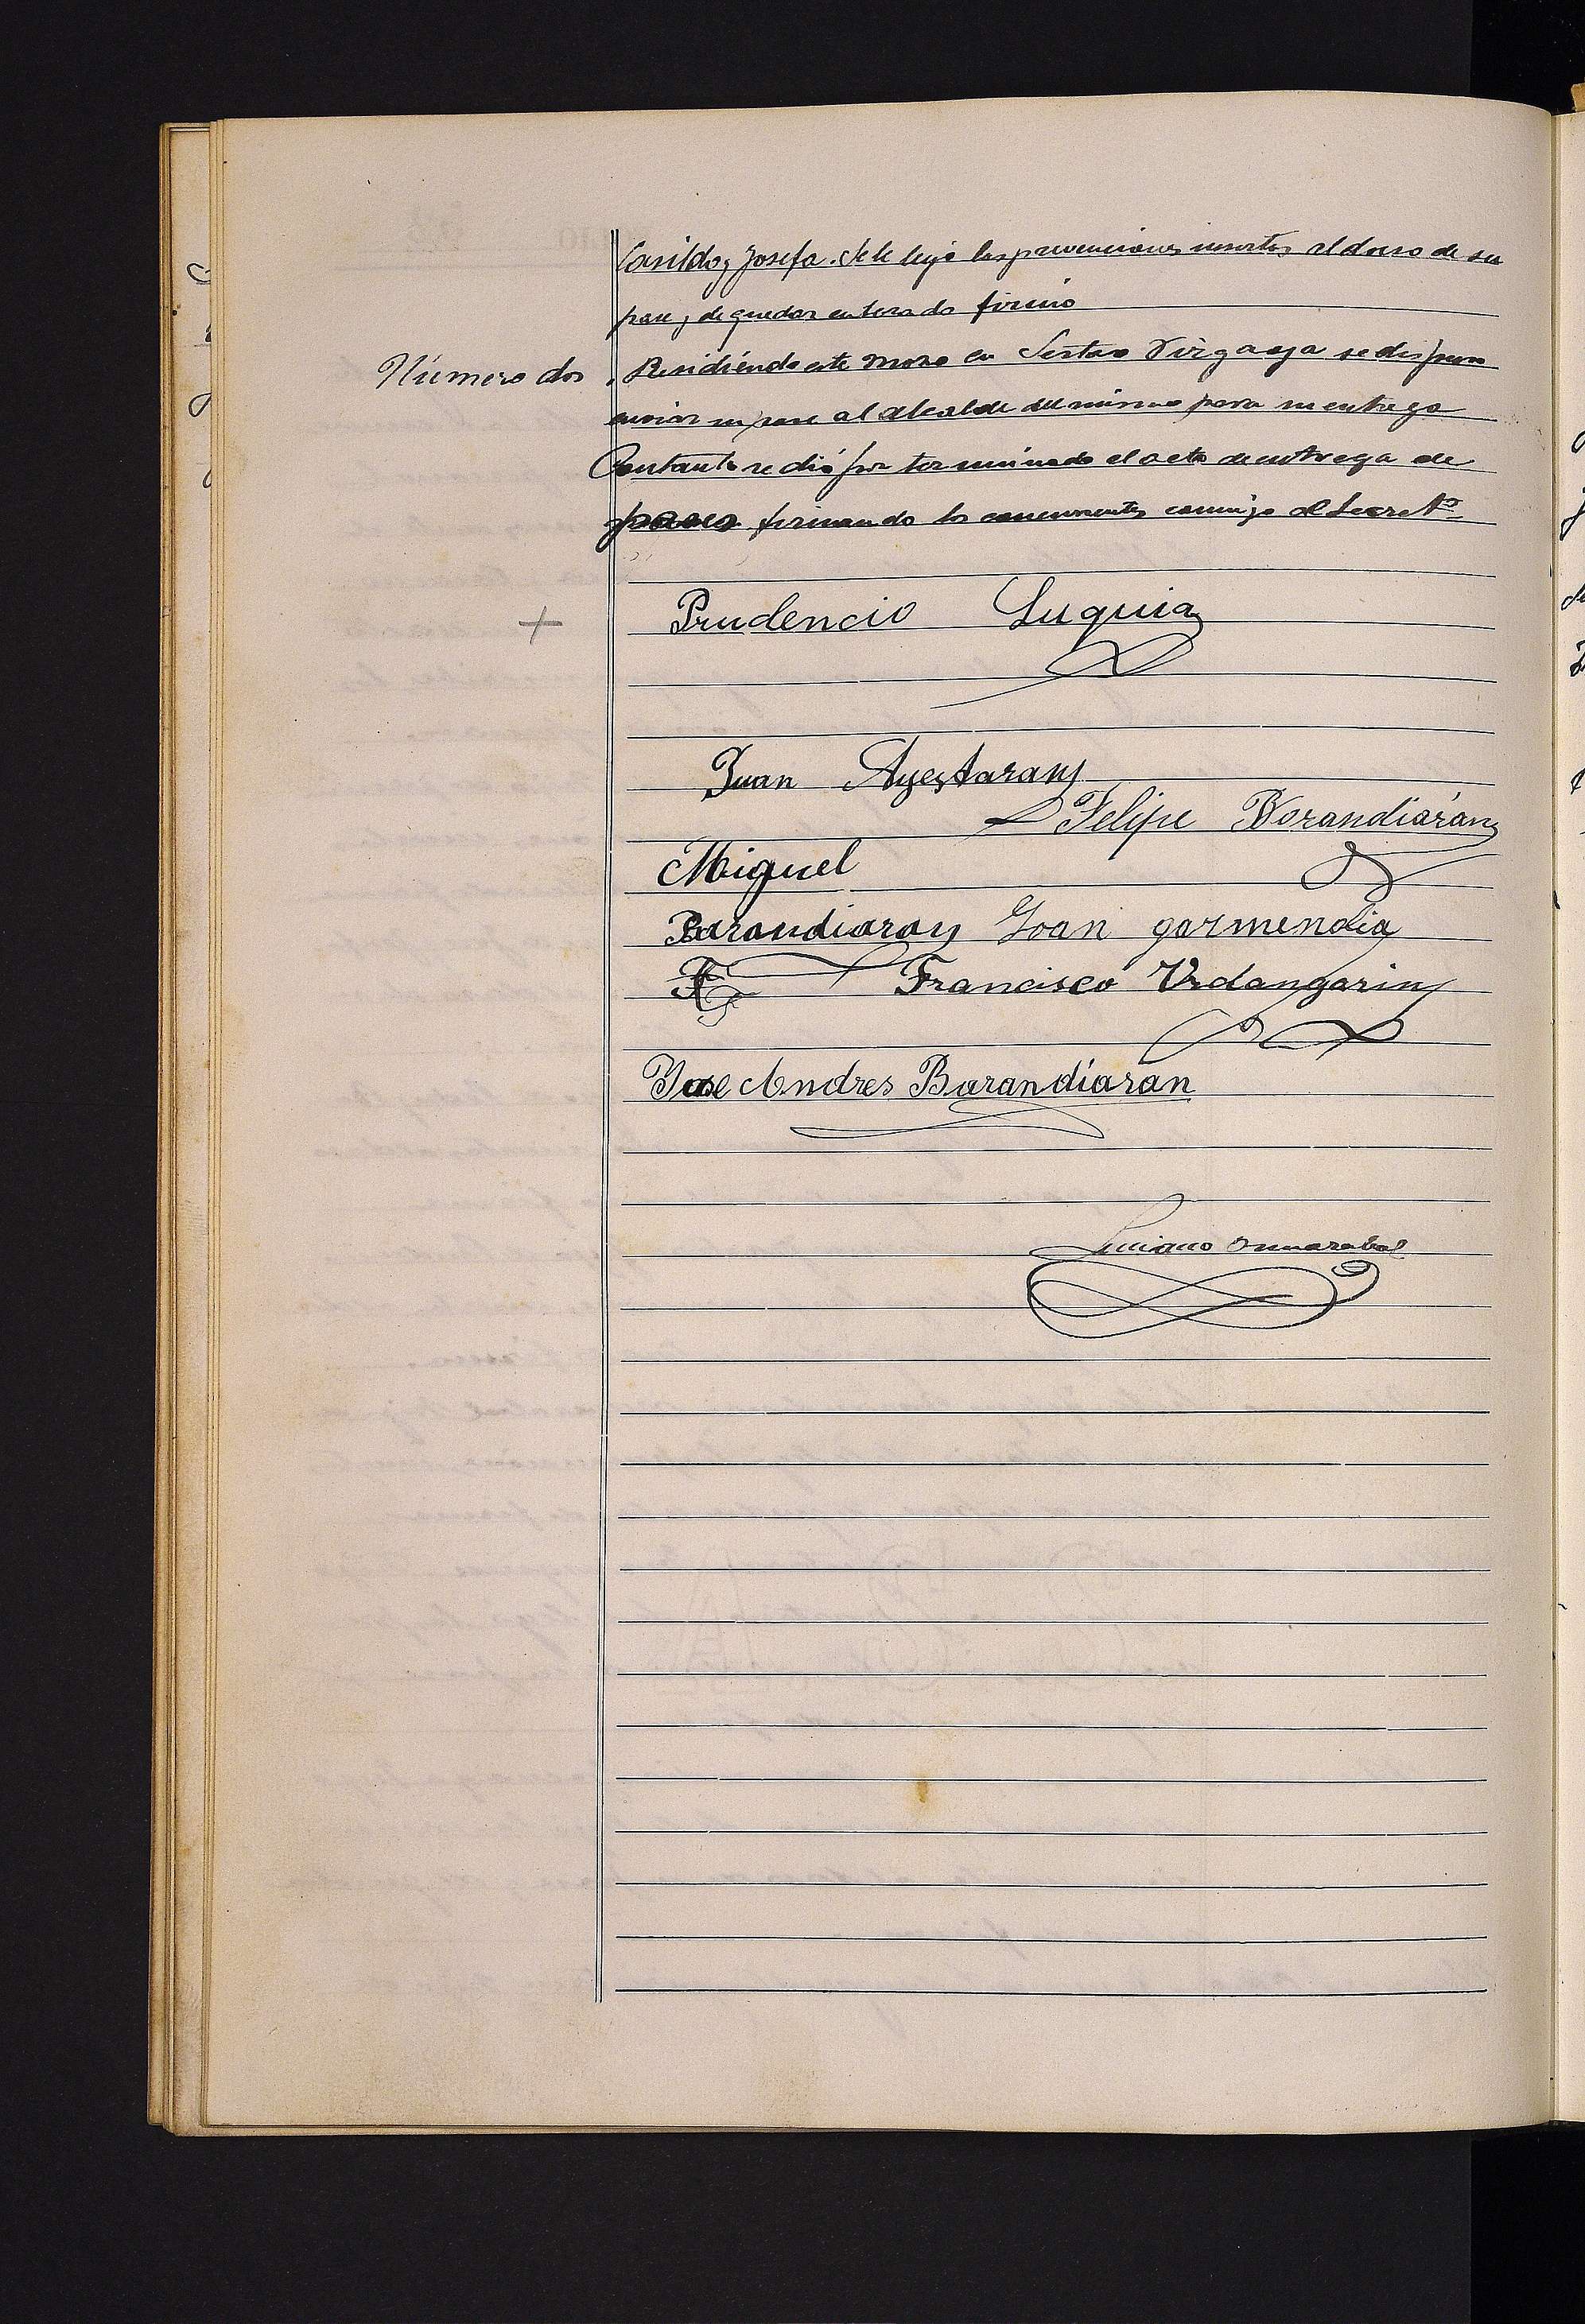 Casildo y Josefa. Se le leyó las prevenciones insertas al dorso de su
pase y de quedar enterado firmó
Número dos. Residiendo este mozo en Sestao Vizcaya se dispuso
enviar su pase al alcalde del mismo para su entrega
Contanto se dió por terminado el acto de entrega de
pases firmando los concurrentes conmigo el Secretº
Prudencio Luquia
Juan Ayestaran
Felipe Barandiarán
Miguel
Barandiaran Joan garmendia
Francisco Urdangarin
Jose Andres Barandiaran
Luciano